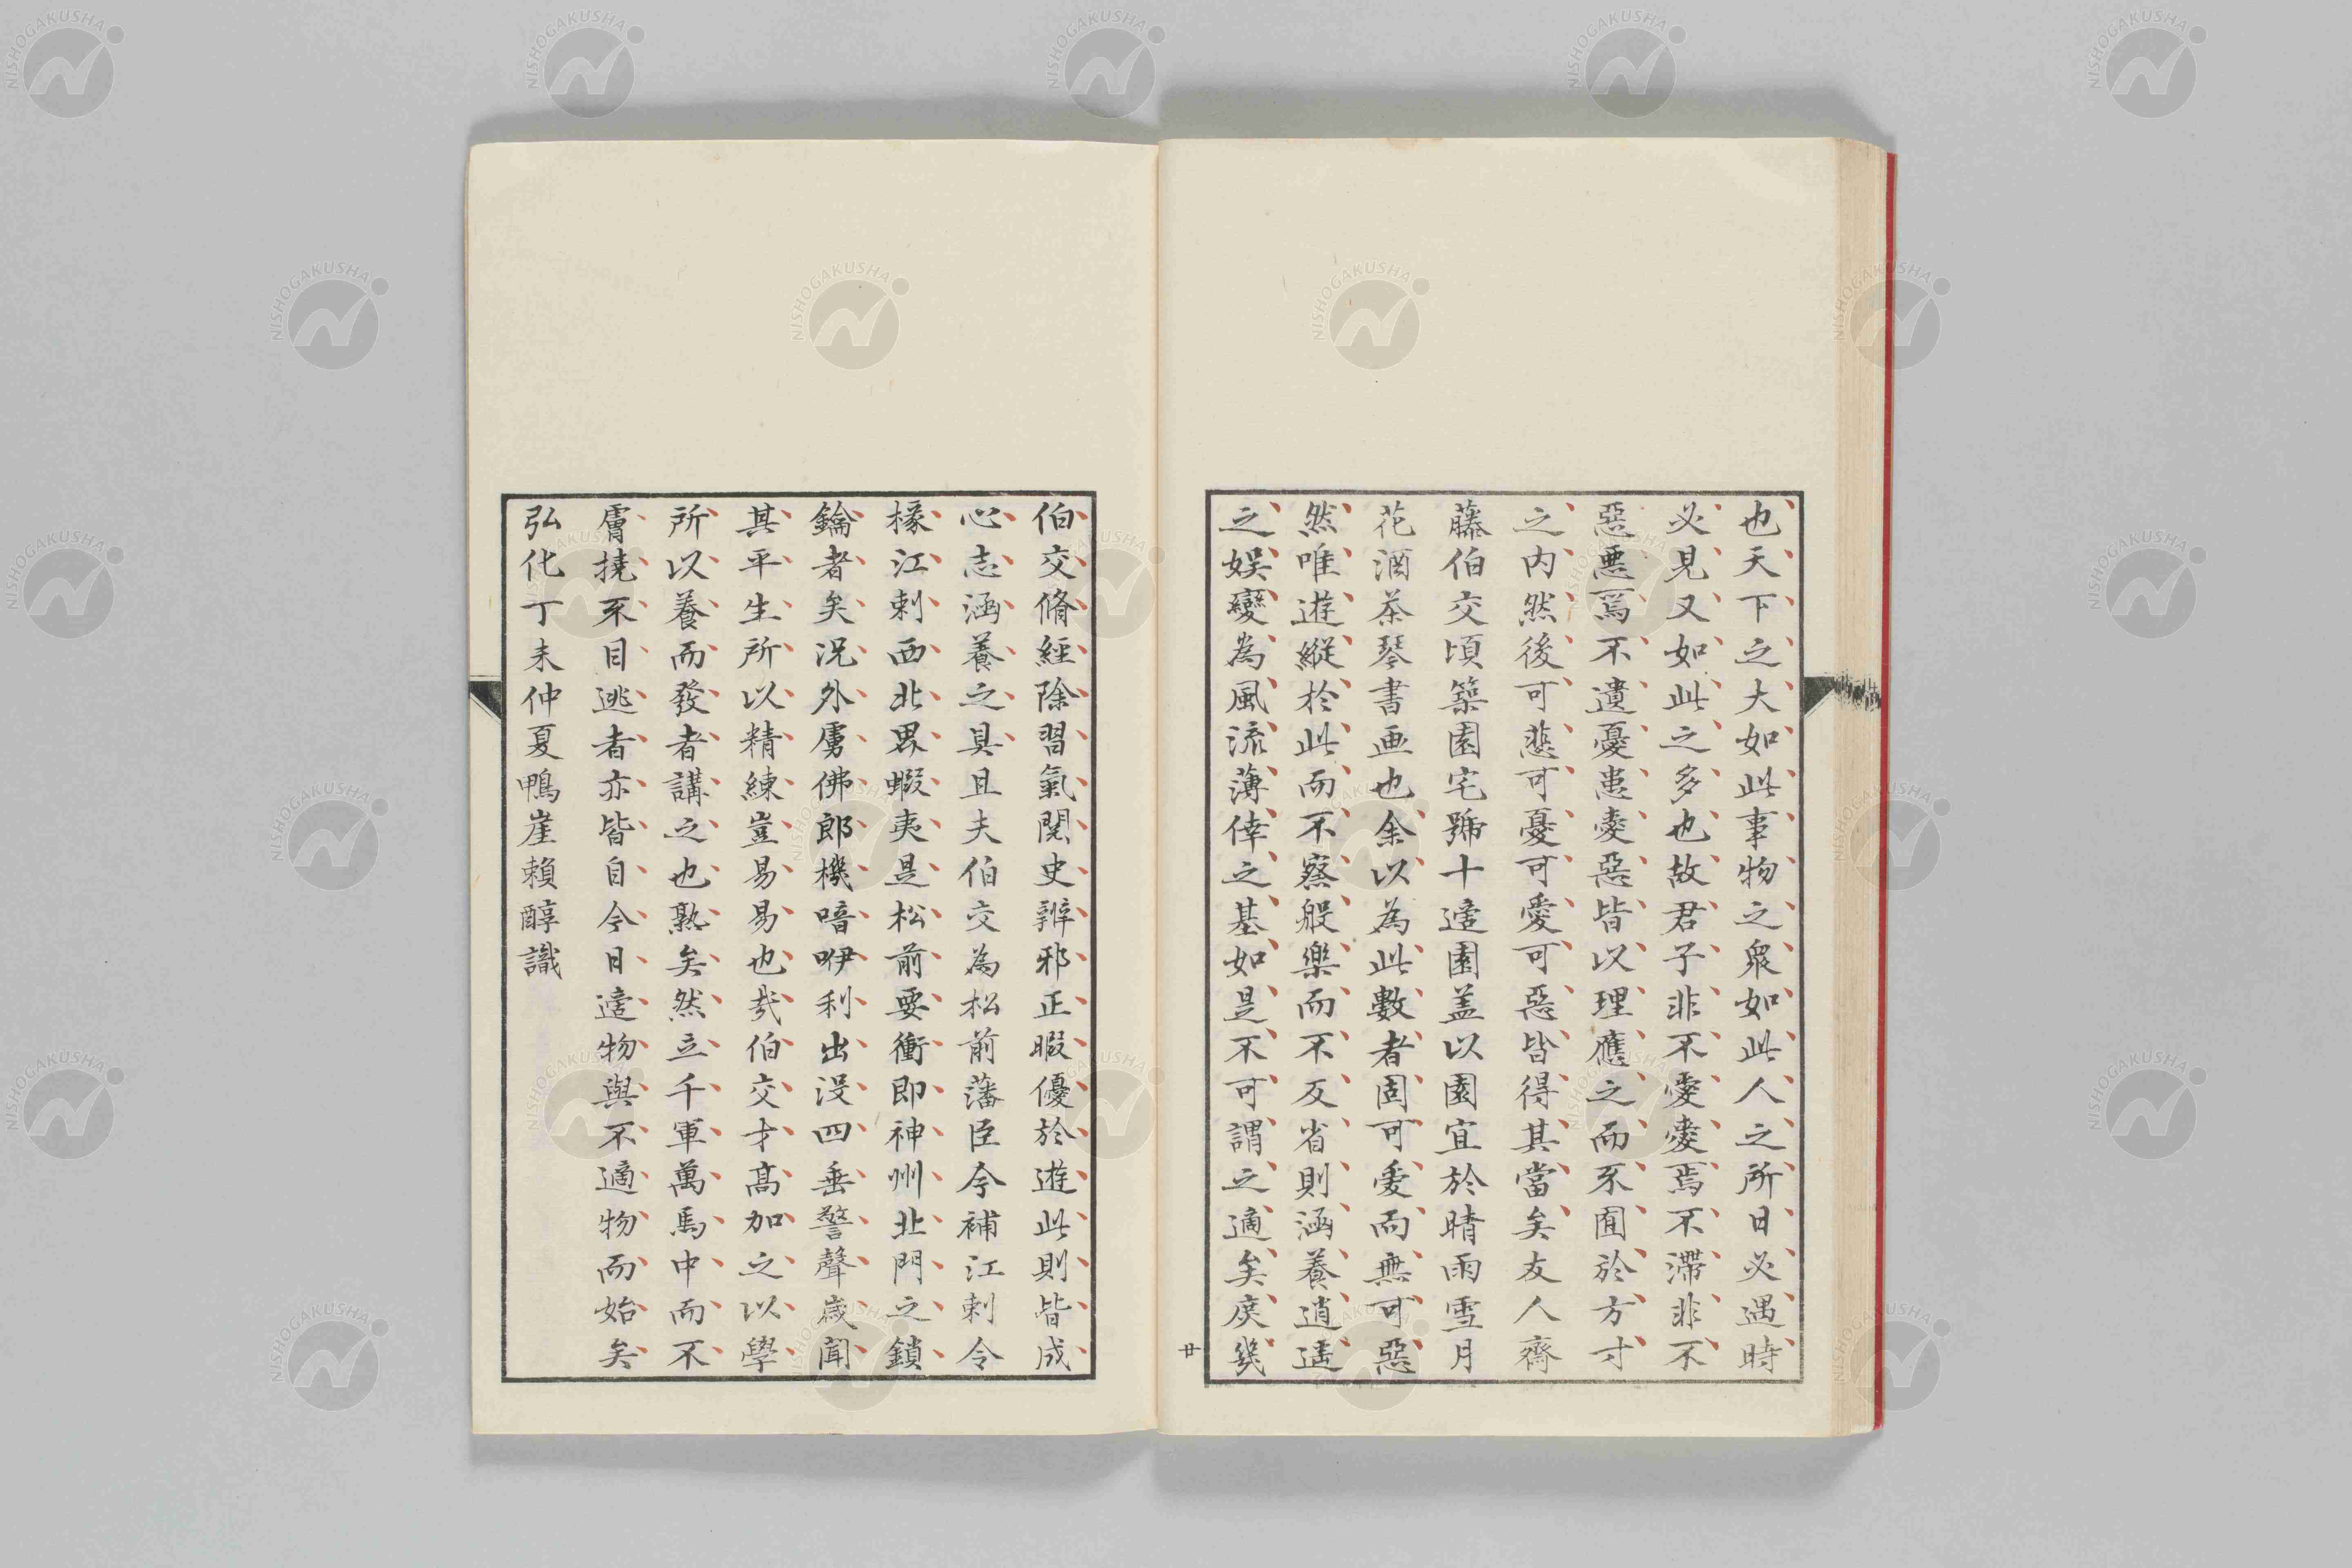 也天下之大如此事物之衆如此人之所日必遇時
必見又如此之多也故君子非不愛愛焉不滯非不
惡惡焉不遺憂患愛惡皆以理應之而不囿於方寸
之内然後可悲可憂可愛可惡皆得其當矣友人齋
藤伯交頃築園宅號十適園盖以園宜於晴雨雪月
花酒茶琴書画也余以為此數者固可愛而無可惡
然唯遊縱於此而不察般樂而不反省則涵養逍遥
之娯變為風流薄倖之基如是不可謂之適矣庶幾
廿
伯交脩經除習氣閱史辨邪正暇優於遊此則皆成
心志涵養之具且夫伯交為松前藩臣今補江刺令
椽江刺西北界蝦夷是松前要衝即神州北門之鎖
鑰者矣況外虜佛郎機喑咿利出没四垂警聲歳聞
其平生所以精練豈易易也哉伯交才髙加之以學
所以養而發者講之也熟矣然立千軍萬馬中而不
膚撓不目逃者亦皆自今日適物與不適物而始矣
弘化丁未仲夏鴨崖賴醇識
NISHOGAKUSHA